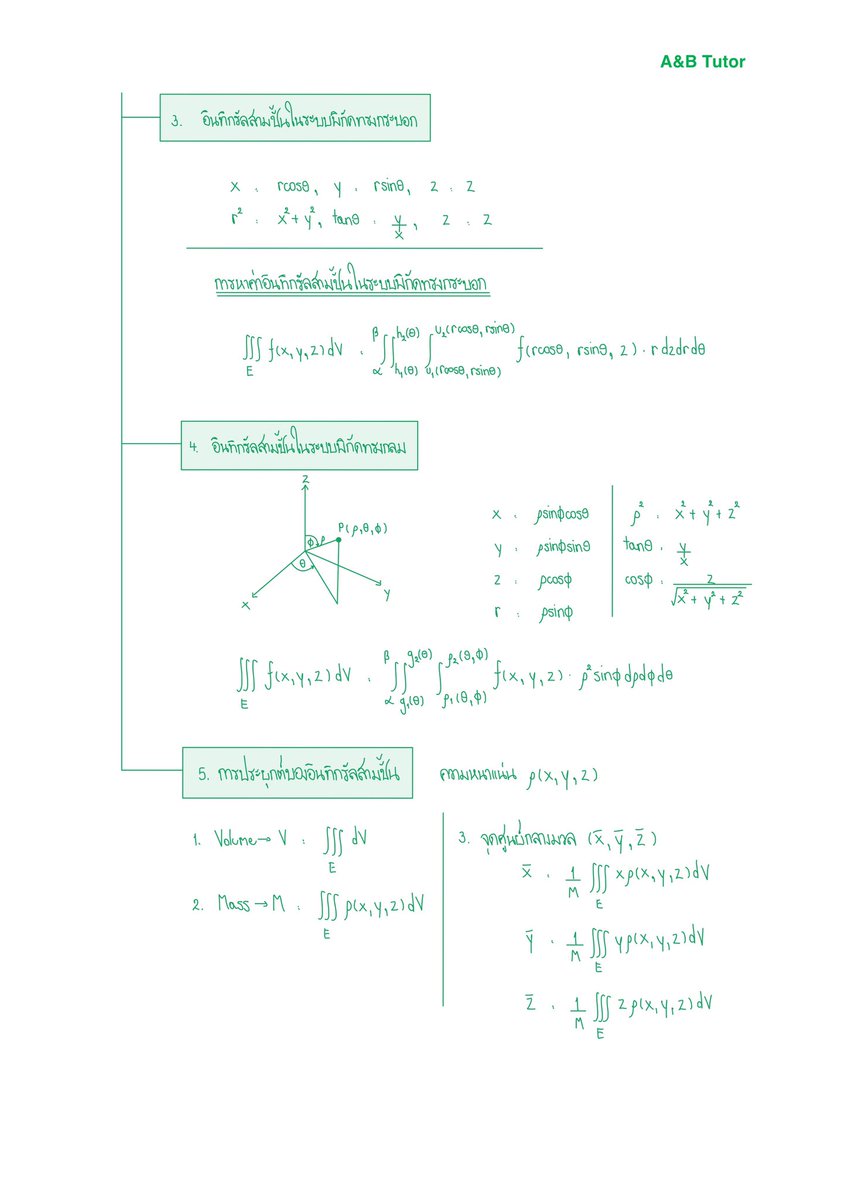 A&B Tutor
3. อินทิกรัลสามชั้นในระบบพิกัดทรงกระบอก
x = rcosθ, y = rsinθ, z = z
r² = x² + y², tanθ = y/x, z = z
การหาค่าอินทิกรัลสามชั้นในระบบพิกัดทรงกระบอก
∭_E f(x,y,z)dV = ∫_α^β ∫_{h₁(θ)}^{h₂(θ)} ∫_{u₁(rcosθ,rsinθ)}^{u₂(rcosθ,rsinθ)} f(rcosθ, rsinθ, z)·r dzdrdθ
4. อินทิกรัลสามชั้นในระบบพิกัดทรงกลม
z
P(ρ,θ,φ)
φ ρ
θ
x
y
x = ρsinφcosθ
y = ρsinφsinθ
z = ρcosφ
r = ρsinφ
ρ² = x² + y² + z²
tanθ = y/x
cosφ = z/√(x² + y² + z²)
∭_E f(x,y,z)dV = ∫_α^β ∫_{g₁(θ)}^{g₂(θ)} ∫_{ρ₁(θ,φ)}^{ρ₂(θ,φ)} f(x,y,z)·ρ²sinφdρdφdθ
5. การประยุกต์ของอินทิกรัลสามชั้น ความหนาแน่น ρ(x,y,z)
1. Volume → V = ∭_E dV
2. Mass → M = ∭_E ρ(x,y,z)dV
3. จุดศูนย์กลางมวล (x̄,ȳ,z̄)
x̄ = 1/M ∭_E xρ(x,y,z)dV
ȳ = 1/M ∭_E yρ(x,y,z)dV
z̄ = 1/M ∭_E zρ(x,y,z)dV